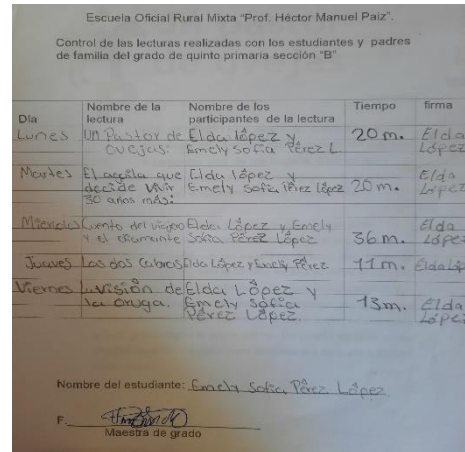 Escuela Oficial Rural Mixta "Prof. Héctor Manuel Paiz".
Control de las lecturas realizadas con los estudiantes y padres
de familia del grado de quinto primaria sección "B"
Día Nombre de la lectura Nombre de los participantes de la lectura Tiempo firma
Lunes Un Pastor de Elda López y 20 m. Elda
ovejas: Emely Sofía Pérez L. López
Martes El aguila que Elda López y Elda
decide vivir Emely Sofía Pérez López 20 m. López
30 años más:
Miercoles Cuento del viejoo Elda López y Emely Elda
y el Sofía Pérez López 36 m. López
Jueves Las dos Cabras Elda López y Emely Pérez 11 m. Elda López
Viernes La visión de Elda López y
la oruga. Emely Sofía 13 m. Elda
Pérez López López
Nombre del estudiante: Emely Sofia Pérez López
F.
Maestra de grado